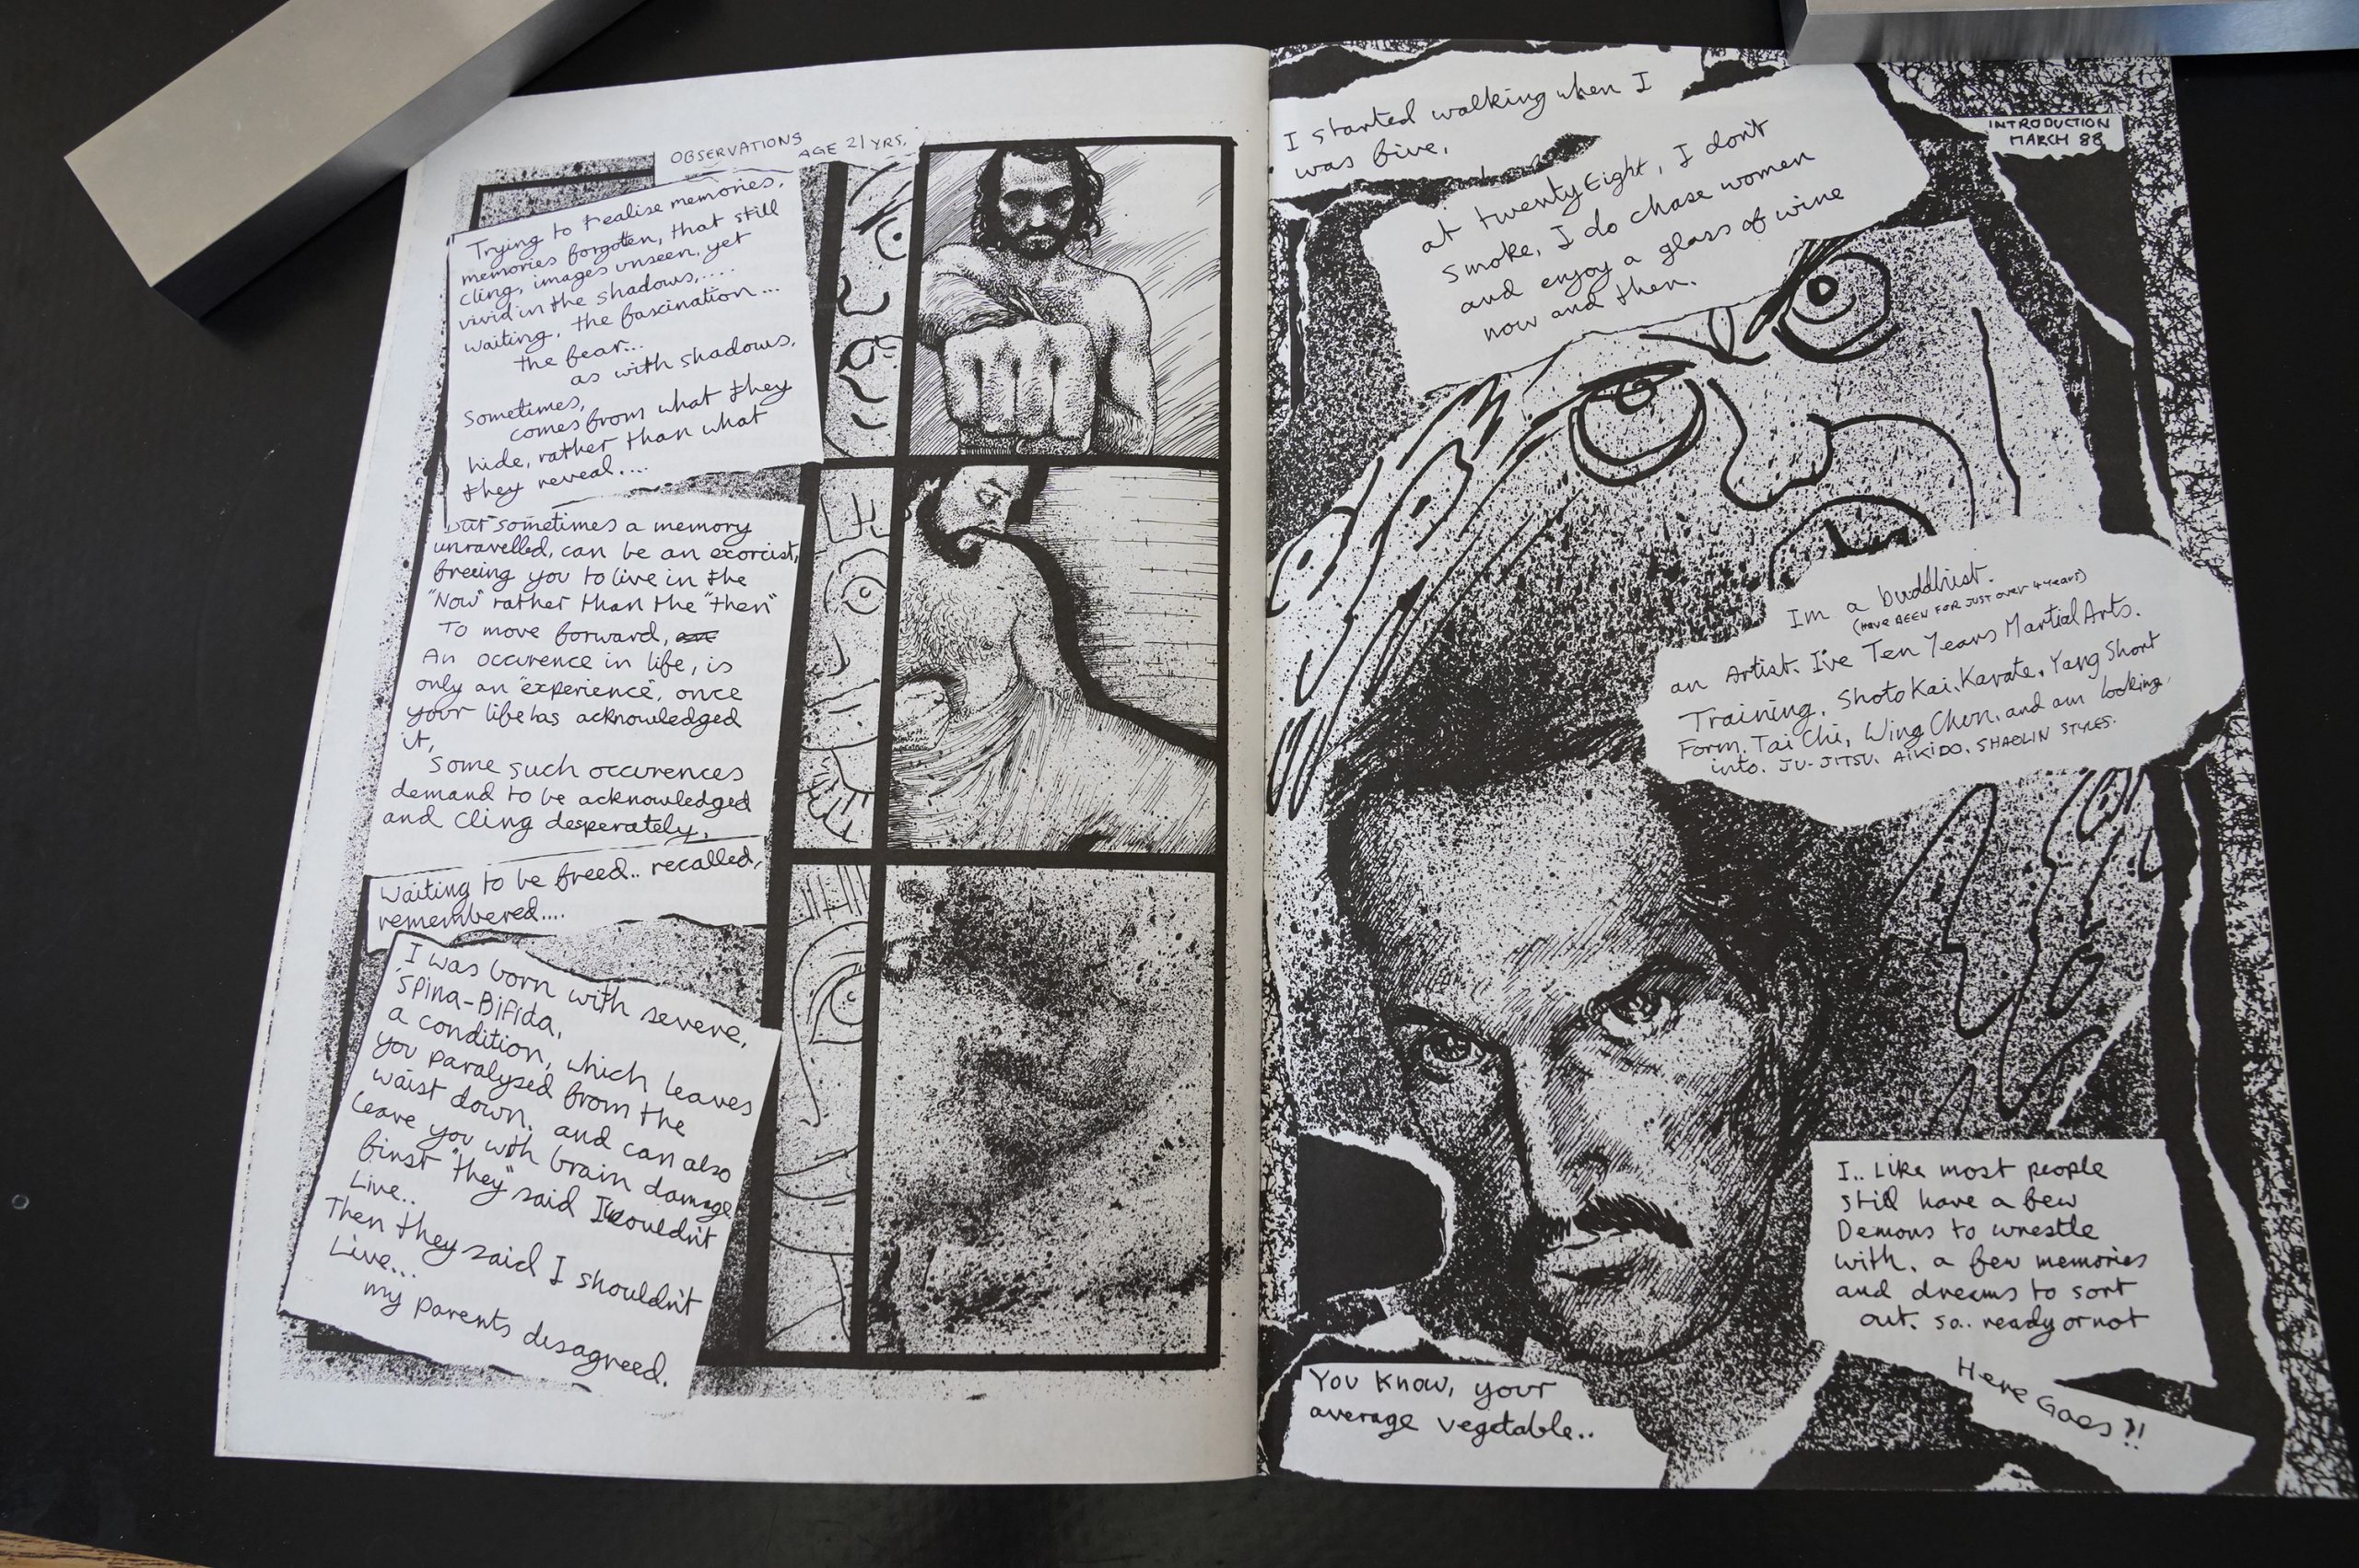 OBSERVATIONS
AGE 21 YRS.
Trying to realise memories,
memories forgotten, that still
cling, images unseen, yet
vivid in the shadows,....
waiting, the fascination...
the fear...
as with shadows,
Sometimes,
comes from what they
hide, rather than what
they reveal....
but sometimes a memory
unravelled, can be an exorcist,
freeing you to live in the
"Now" rather than the "then"
To move forward,
An occurence in life, is
only an "experience", once
your life has acknowledged
it,
some such occurences
demand to be acknowledged
and cling desperately,
waiting to be freed.. recalled,
remembered....
I was born with severe,
Spina-Bifida,
a condition, which leaves
you paralysed from the
waist down, and can also
leave you with brain damage
first "they" said I wouldn't
Live..
Then they said I shouldn't
Live...
my parents disagreed.
INTRODUCTION
MARCH 88
I started walking when I
was five,
at twenty Eight, I don't
smoke, I do chase women
and enjoy a glass of wine
now and then.
Im a buddhist.
(HAVE BEEN FOR JUST OVER 4 years)
an Artist. I've Ten Years Martial Arts.
Training. Shoto Kai. Karate. Yang Short
Form. Tai Chi, Wing Chun, and am looking,
into. JU-JITSU. AIKIDO. SHAOLIN STYLES.
I.. Like most people
still have a few
Demons to wrestle
with, a few memories
and dreams to sort
out. so.. ready or not
Here Goes?!
You Know, your
average vegetable..